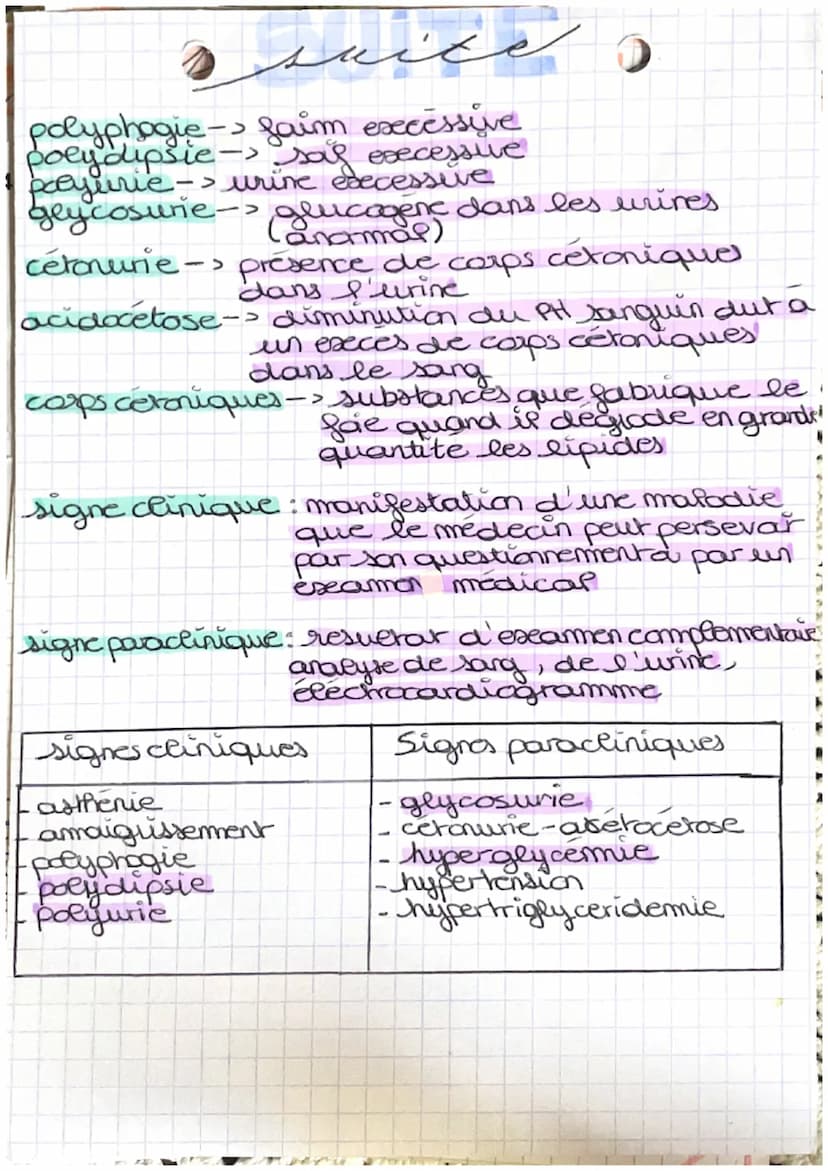 SUITE
suite
polyphagie -> faim excéssive
polydipsie -> soif excessive
polyurie -> urine excessive
glycosurie -> glucogène dans les urines
(anormal)
cétonurie -> présence de corps cétoniques
dans l'urine
acidocétose -> diminution du PH sanguin dut à
un excès de corps cétoniques
dans le sang
corps cétoniques -> substances que fabrique le
foie quand il dégrade en grande
quantité les lipides
signe clinique : manifestation d'une maladie
que le médecin peut persevoir
par son questionnement où par un
examen médical
signe paraclinique : resultat d'examen complementaire
analyse de sang, de l'urine,
éléctrocardiogramme
signes cliniques
Signes paracliniques
- asthénie
- amaigrissement
- polyphagie
- polydipsie
- polyurie
- glycosurie
- cétonurie - acétocétose
- hyperglycémie
- hypertension
- hypertriglyceridemie